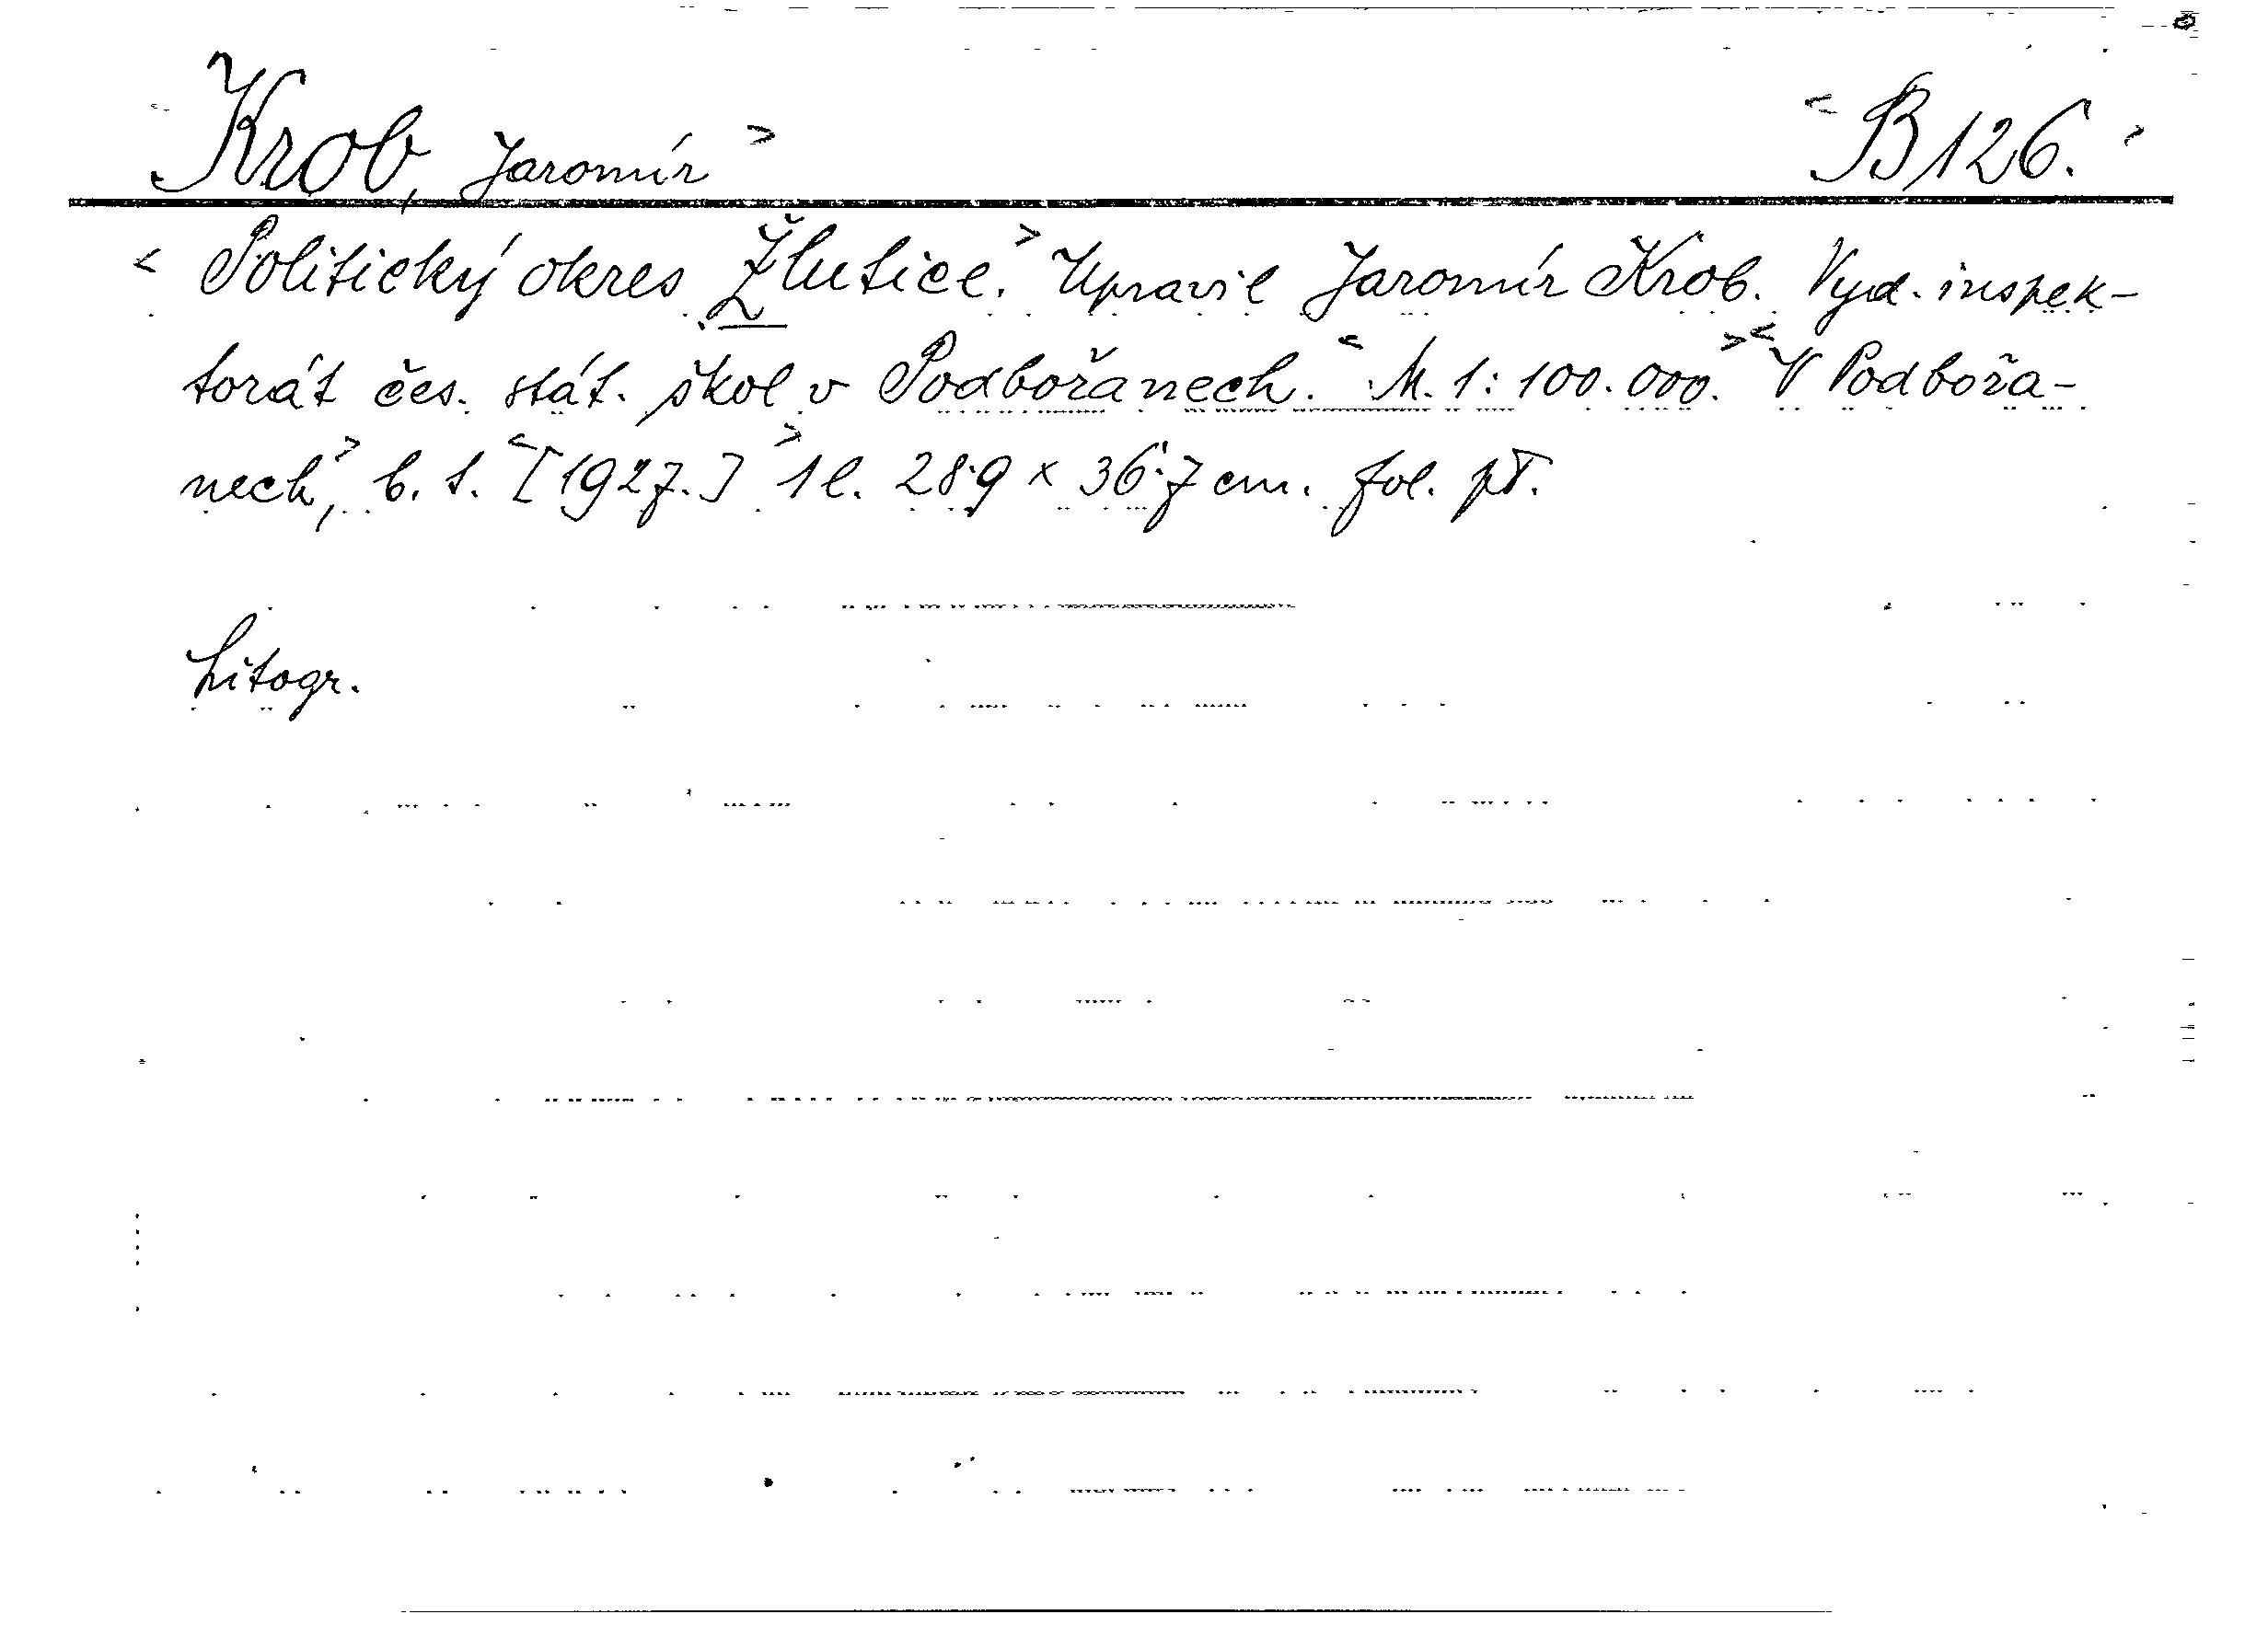 <Krob, Jaromír> <B 126.>
<Politický okres Žlutice.> Upravil Jaromír Krob. Vyd. inspek-
torát čes. stát. škol v Podbořanech. <M. 1:100.000.> <V Podbořa-
nech>, b. t. <[1927.]> 1 l. 28·9 x 36·7 cm. fol. př.
Litogr.